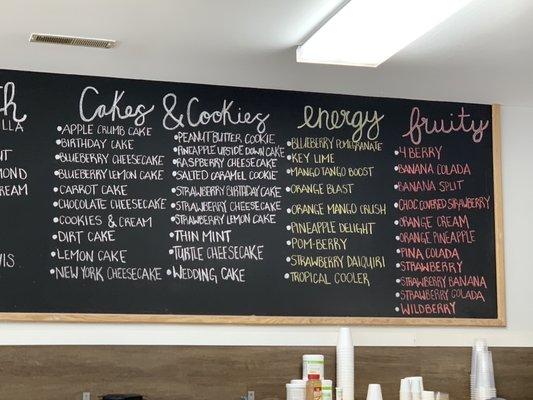 th
LLA
NT
MOND
REAM
VIS
Cakes & Cookies
•APPLE CRUMB CAKE
•BIRTHDAY CAKE
•BLUEBERRY CHEESECAKE
•BLUEBERRY LEMON CAKE
•CARROT CAKE
•CHOCOLATE CHEESECAKE
•COOKIES & CREAM
•DIRT CAKE
•LEMON CAKE
•NEW YORK CHEESECAKE
•PEANUT BUTTER COOKIE
•PINEAPPLE UPSIDE DOWN CAKE
•RASPBERRY CHEESECAKE
•SALTED CARAMEL COOKIE
•STRAWBERRY BIRTHDAY CAKE
•STRAWBERRY CHEESECAKE
•STRAWBERRY LEMON CAKE
•THIN MINT
•TURTLE CHEESECAKE
•WEDDING CAKE
energy
•BLUEBERRY POMEGRANATE
•KEY LIME
•MANGO TANGO BOOST
•ORANGE BLAST
•ORANGE MANGO CRUSH
•PINEAPPLE DELIGHT
•POM-BERRY
•STRAWBERRY DAIQUIRI
•TROPICAL COOLER
fruity
•4 BERRY
•BANANA COLADA
•BANANA SPLIT
•CHOC COVERED STRAWBERRY
•ORANGE CREAM
•ORANGE PINEAPPLE
•PINA COLADA
•STRAWBERRY
•STRAWBERRY BANANA
•STRAWBERRY COLADA
•WILDBERRY